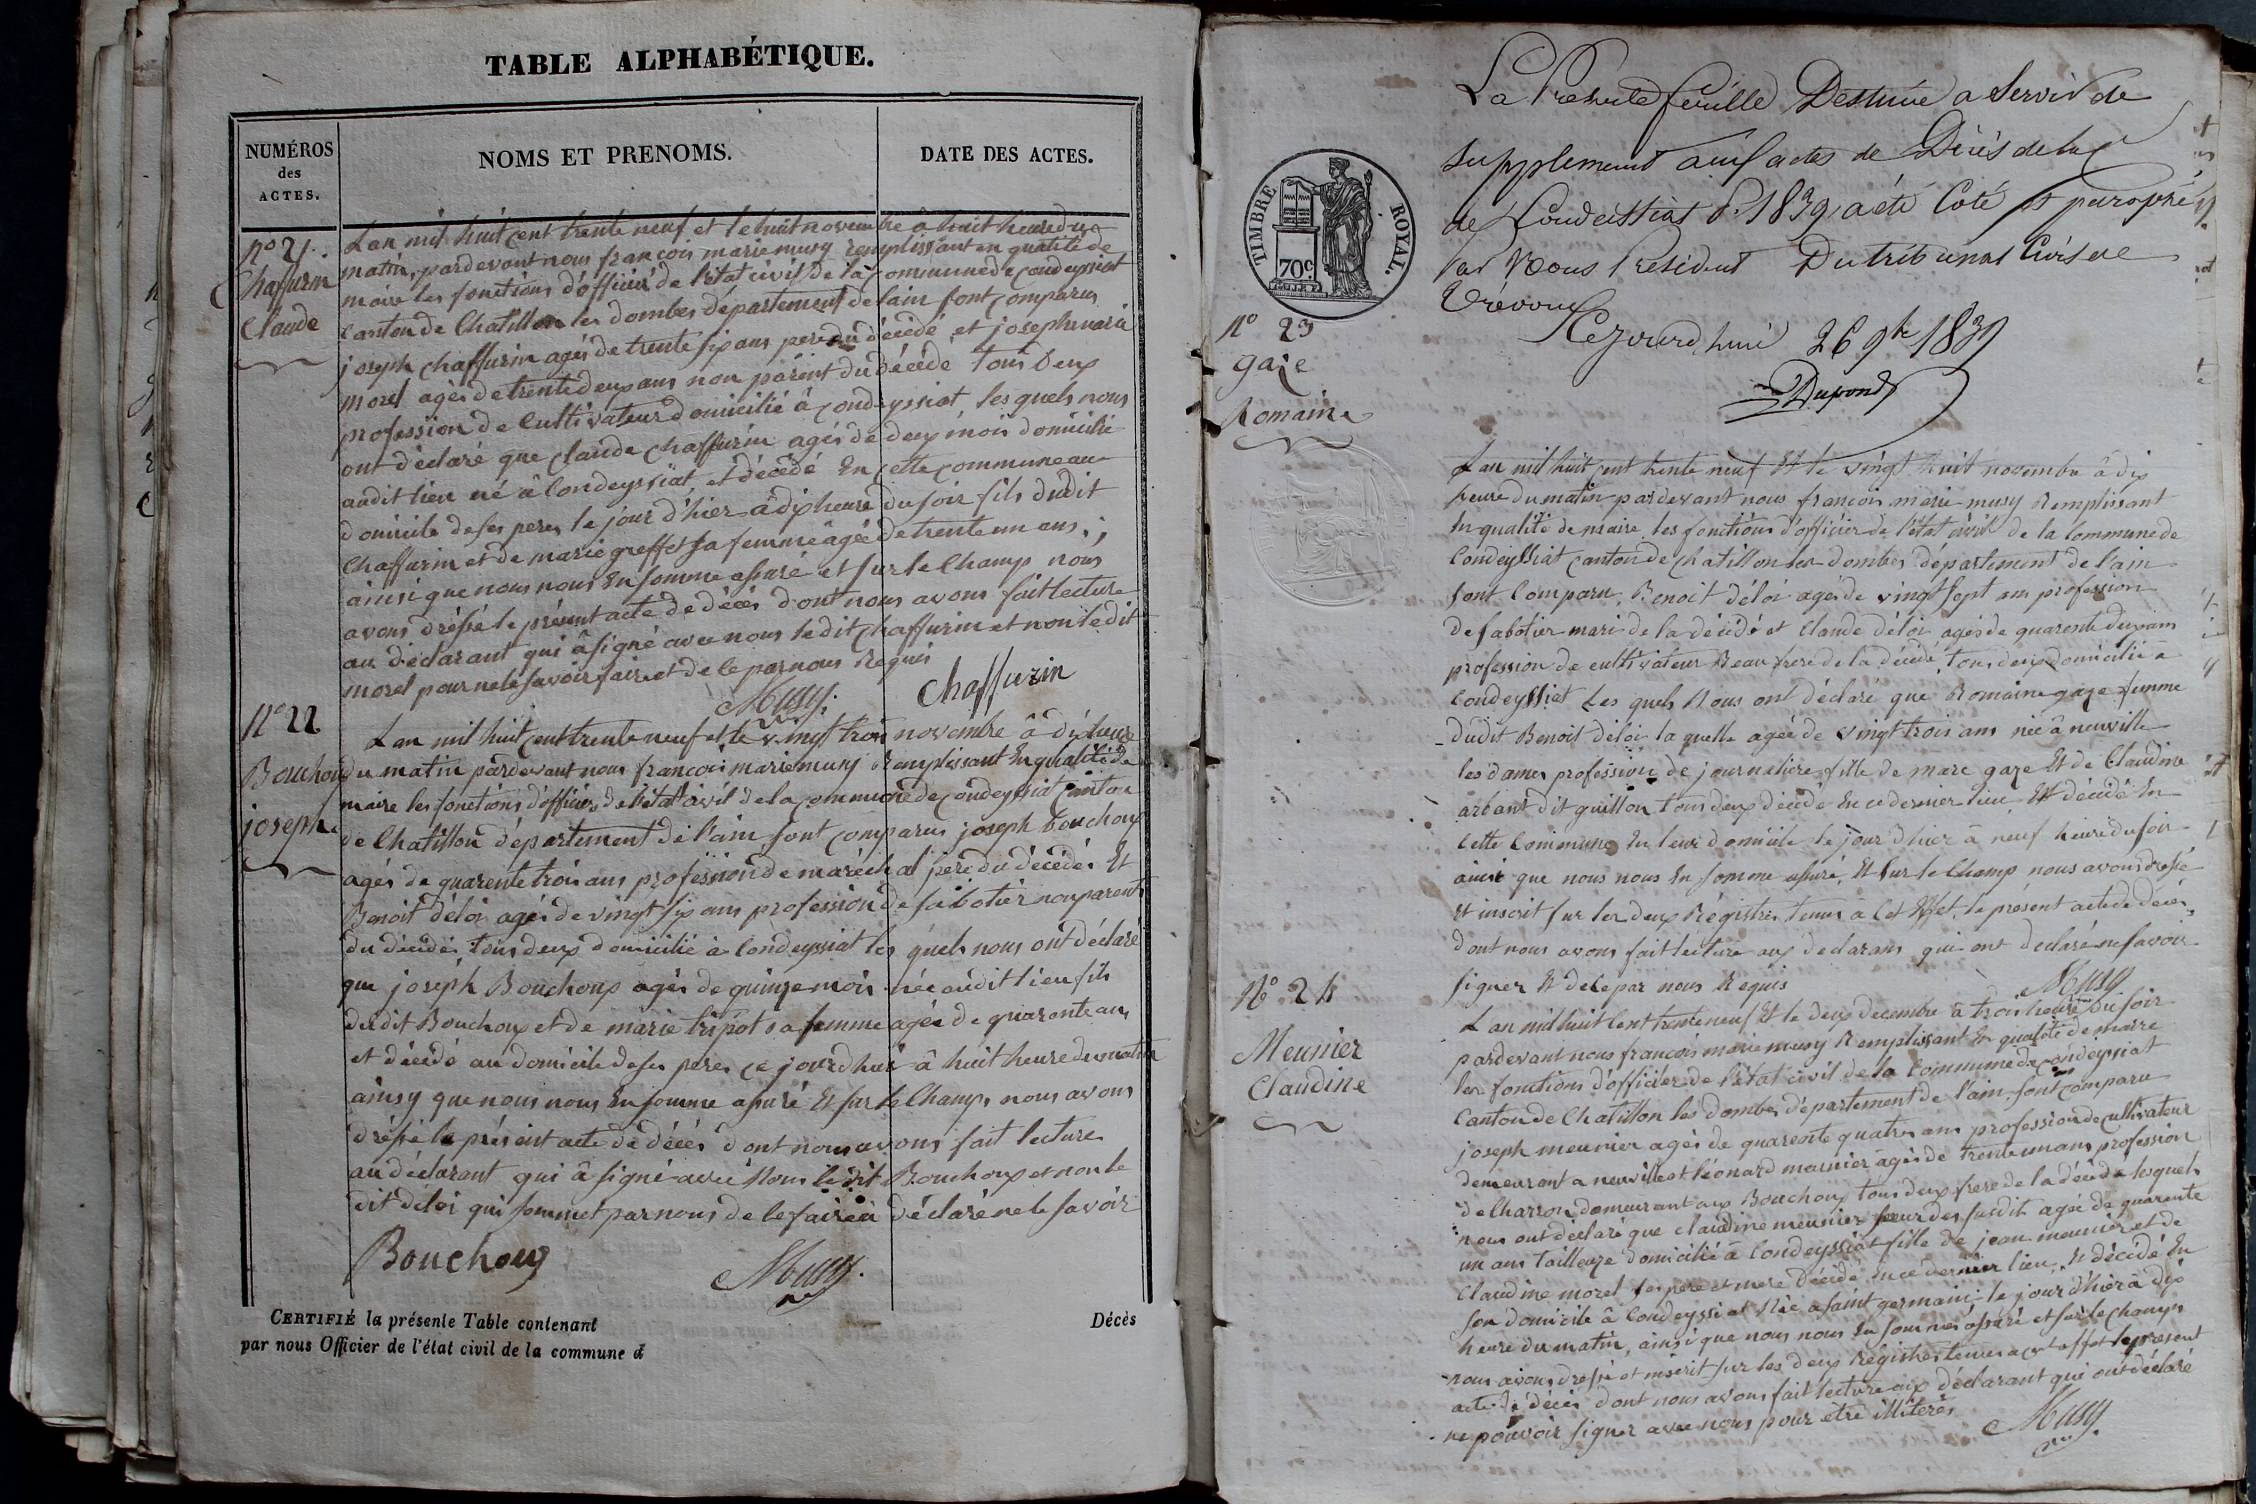 TABLE ALPHABÉTIQUE.
NUMÉROS
des
ACTES.
NOMS ET PRENOMS.
DATE DES ACTES.
n° 21.
Chaffurin
Claude
Lan mil huit cent trente neuf et le huit novembre â huit heure du
matin, pardevant nous françois marie musy remplissant en qualité de
maire les fonctions d'officier de l'état civil de la commune de condeyssiat
canton de Chatillon les dombes département de lain sont comparus
joseph chaffurin agés de trente six ans pere du décedé et joseph marie
morel agés de trente deux ans non parent du décédé tous deux
profession de cultivateur domicilié à condeyssiat les quels nous
ont déclaré que claude chaffurin agés de deux mois domicilié
audit lieu né à Condeyssiat, et décédé en cette commune au
domicile de ses peres le jour d'hier â dix heure du soir fils dudit
Chaffurin et de marie greffet sa femme âgée de trente un ans,
ainsi que nous nous en somme assuré et sur le champ nous
avons dréssé le présent acte de décés dont nous avons fait lecture
au déclarant qui â signé avec nous ledit chaffurin et non ledit
morel pour ne le savoir faire et de ce par nous Requis
Musy. Chaffurin
N° 22
Bouchoux
joseph
Lan mil huit cent trente neuf et le vingt trois novembre â dix heure
du matin pardevant nous francois marie musy Remplissant En qualité de
maire les fonctions d'officier de l'état civil de la commune de condeyssiat Canton
de Chatillon département de l'ain sont comparus joseph bouchoux
agés de quarente trois ans profession de maréchal pere du décédés Et
Benoit déloi agés de vingt six ans profession de sabotier non parent
du décédés tous deux domicilié à Condeyssiat les quels nous ont déclaré
que joseph Bouchoux agés de quinze mois née audit lieu fils
dudit Bouchoux et de marie tripot sa femme agée de quarente ans
et décédé au domicile de ses peres ce jourdhui â huit heure du matin
ainsy que nous nous En somme assuré Et sur le Champs nous avons
dréssé le présent acte de décés dont nous avons fait lecture
au déclarant qui â signé avec Nous ledit Bouchoux et non le
dit déloi qui sommet par nous de le faire à déclaré ne le savoir
Bouchoux Musy.
CERTIFIÉ la présente Table contenant
Décès
par nous Officier de l'état civil de la commune d
La Presente feuille Destinée a Servir de
Supplement aux actes de Décès de la Cne
de Condeissiat P. 1839, a été Coté et paraphé
Par Nous President Du tribunal Civil de
Trévoux
Cejourd'hui 26 9bre 1839
Dupond
TIMBRE ROYAL.
70c.
N° 23
gaze
Romaine
Lan mil huit cent trente neuf Et le vingt huit novembre â dix
heure du matin pardevant nous francois marie musy Remplissant
En qualité de maire les fonctions d'officier de l'état civil de la Commune de
Condeyssiat canton de chatillon les dombes département de l'ain
sont Comparu, Benoit déloi agés de vingt sept ans profession
de sabotier mari de la décédé et Claude déloi agés de quarente deux ans
profession de cultivateur Beau frere de la décédé, tous deux domicilié a
Condeyssiat Les quels Nous ont déclaré que Romaine gaze femme
dudit Benoit déloi la quelle agée de vingt trois ans née à neuville
les dames profession de journaliere fille de marc gaze Et de Claudine
arbant dit guillon tous deux décédé En ce dernier lieu Est décédé En
cette Commune En leur domicile le jour d'hier â neuf heure du soir
ainsi que nous nous En somme assuré, Et Sur le Champ nous avons dréssé
et inscrit sur les deux Régistres tenus à Cet Effet le présent acte de décés,
dont nous avons fait lecture aux déclarans qui ont declaré ne savoir
signer Et de ce par nous Requis Musy
N° 24
Meunier
Claudine
Lan mil huit cent trente neuf Et le deux decembre à trois heure du soir
pardevant nous francois marie musy Remplissant En qualité de maire
les fonctions d'officier de l'état civil de la Commune de Condeyssiat
Canton de Chatillon les dombes département de l'ain, sont comparu
joseph meunier agés de quarente quatre ans profession de cultivateur
demeurant a neuville et léonard meunier agés de trente un ans profession
de charron demeurant aux Bouchoux tous deux frere de la décédé lesquels
nous ont déclaré que claudine meunier sœur des susdits agée de quarente
un ans tailleuze domicilié â Condeyssiat fille de jean meunier et de
Claudine morel ses pere et mere décédé En ce dernier lieu, Et décédé En
son domicile â Condeyssiat Née a saint germain, le jour d'hier â dix
heure du matin, ainsi que nous nous En sommes assuré et sur le champs
nous avons dréssé et inscrit sur les deux Régistres tenus a cet effet le présent
acte de décés dont nous avons fait lecture aux déclarant qui ont déclaré
ne pouvoir signer avec nous pour etre illiterés
Musy